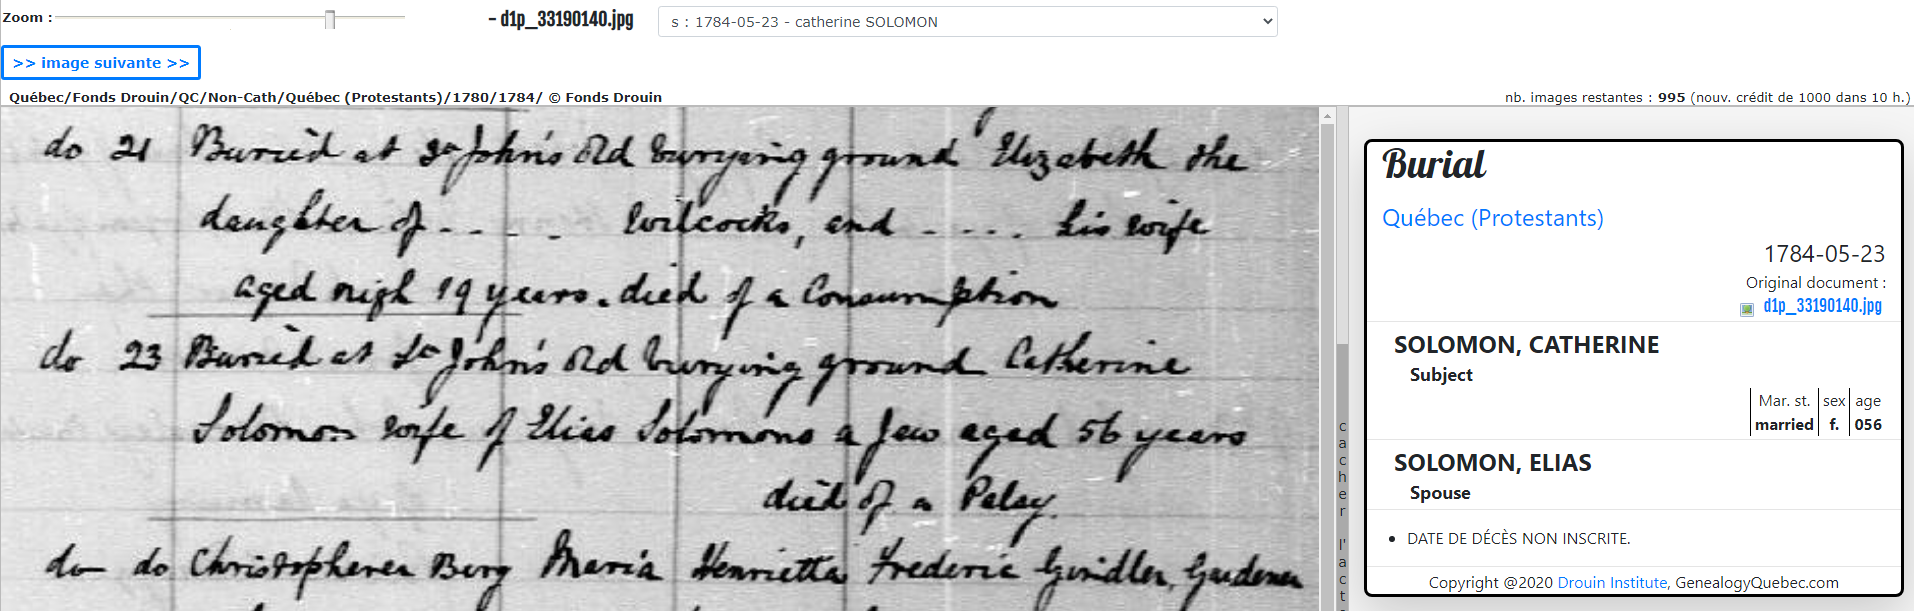 Zoom :
- d1p_33190140.jpg
s : 1784-05-23 - catherine SOLOMON
>> image suivante >>
Québec/Fonds Drouin/QC/Non-Cath/Québec (Protestants)/1780/1784/ © Fonds Drouin
nb. images restantes : 995 (nouv. crédit de 1000 dans 10 h.)
do 21 Buried at St John's Old burying ground Elizabeth the
daughter of - - - - Wilcocks, and - - - - his wife
aged nigh 19 years. died of a Consumption
do 23 Buried at St John's Old burying ground Catherine
Solomon wife of Elias Solomons a Jew aged 56 years
died of a Palsy.
do do Christopherer Berg Maria Henrietta Frederic Gardener
cacher l'act
Burial
Québec (Protestants)
1784-05-23
Original document :
d1p_33190140.jpg
SOLOMON, CATHERINE
Subject
Mar. st. sex age
married f. 056
SOLOMON, ELIAS
Spouse
• DATE DE DÉCÈS NON INSCRITE.
Copyright @2020 Drouin Institute, GenealogyQuebec.com